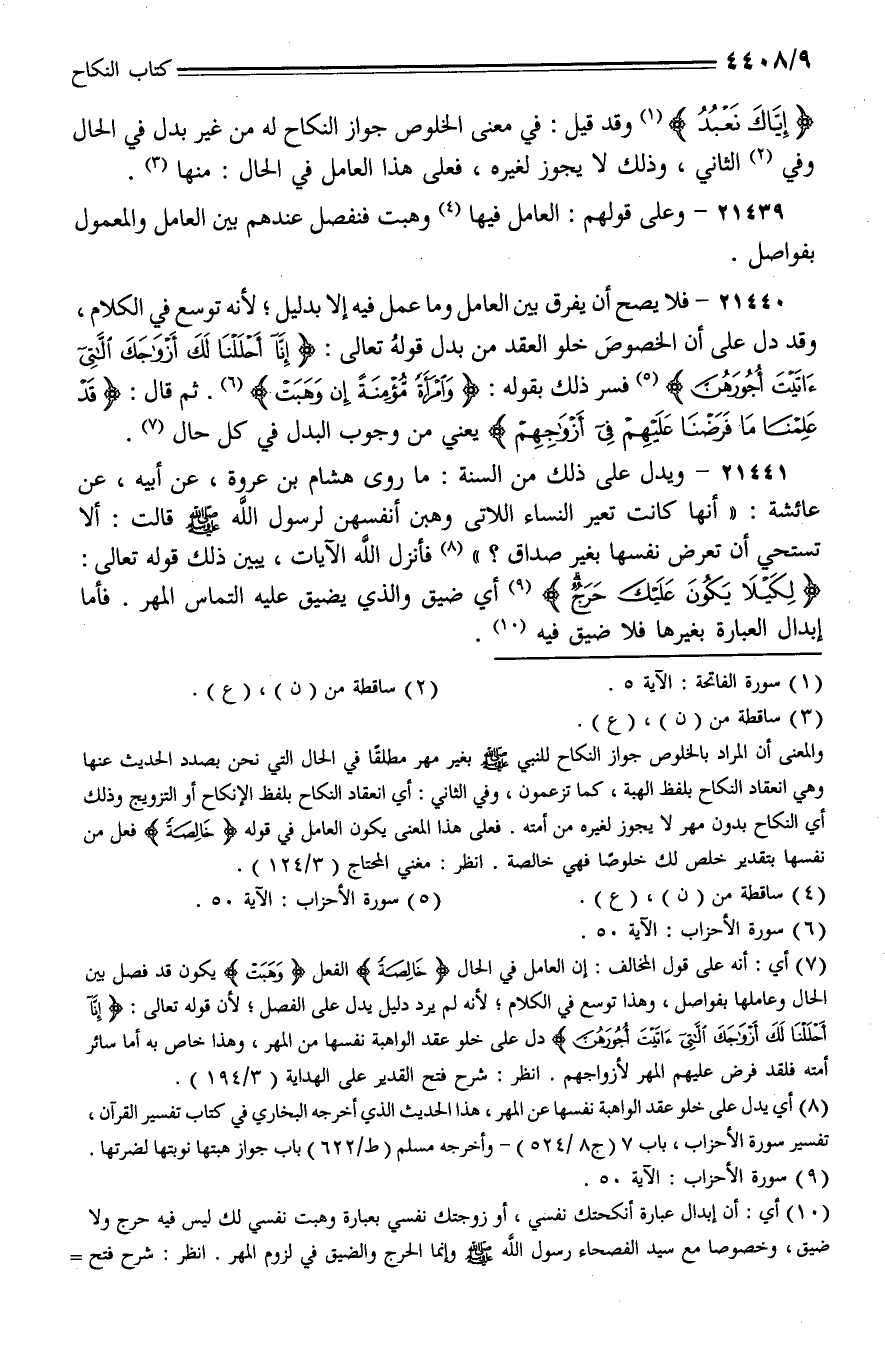 ٤٤٠٨/٩ كتاب النكاح
﴿ إِيَّاكَ نَعْبُدُ ﴾ (١) وقد قيل : في معنى الخلوص جواز النكاح له من غير بدل في الحال
وفي (٢) الثاني ، وذلك لا يجوز لغيره ، فعلى هذا العامل في الحال : منها (٣) .
٢١٤٣٩ – وعلى قولهم : العامل فيها (٤) وهبت فنفصل عندهم بين العامل والمعمول
بفواصل .
٢١٤٤٠ – فلا يصح أن يفرق بين العامل وما عمل فيه إلا بدليل ؛ لأنه توسع في الكلام ،
وقد دل على أن الخصوصَ خلو العقد من بدل قولهُ تعالى : ﴿ إِنَّآ أَحْلَلْنَا لَكَ أَزْوَٰجَكَ ٱلَّٰتِىٓ
ءَاتَيْتَ أُجُورَهُنَّ ﴾ (٥) فسر ذلك بقوله : ﴿ وَٱمْرَأَةً مُّؤْمِنَةً إِن وَهَبَتْ ﴾ (٦) . ثم قال : ﴿ قَدْ
عَلِمْنَا مَا فَرَضْنَا عَلَيْهِمْ فِىٓ أَزْوَٰجِهِمْ ﴾ يعني من وجوب البدل في كل حال (٧) .
٢١٤٤١ – ويدل على ذلك من السنة : ما روى هشام بن عروة ، عن أبيه ، عن
عائشة : « أنها كانت تعير النساء اللاتى وهبن أنفسهن لرسول اللَّه ﷺ قالت : ألا
تستحي أن تعرض نفسها بغير صداق ؟ » (٨) فأنزل اللَّه الآيات ، يبين ذلك قوله تعالى :
﴿ لِكَيْلَا يَكُونَ عَلَيْكَ حَرَجٌ ﴾ (٩) أي ضيق والذي يضيق عليه التماس المهر . فأما
إبدال العبارة بغيرها فلا ضيق فيه (١٠) .
(١) سورة الفاتحة : الآية ٥ . (٢) ساقطة من ( ن ) ، ( ع ) .
(٣) ساقطة من ( ن ) ، ( ع ) .
والمعنى أن المراد بالخلوص جواز النكاح للنبي ﷺ بغير مهر مطلقًا في الحال التي نحن بصدد الحديث عنها
وهي انعقاد النكاح بلفظ الهبة ، كما تزعمون ، وفي الثاني : أي انعقاد النكاح بلفظ الإنكاح أو التزويج وذلك
أي النكاح بدون مهر لا يجوز لغيره من أمته . فعلى هذا المعنى يكون العامل في قوله ﴿ خَالِصَةً ﴾ فعل من
نفسها بتقدير خلص لك خلوصًا فهي خالصة . انظر : مغني المحتاج ( ١٢٤/٣ ) .
(٤) ساقطة من ( ن ) ، ( ع ) . (٥) سورة الأحزاب : الآية ٥٠ .
(٦) سورة الأحزاب : الآية ٥٠ .
(٧) أي : أنه على قول المخالف : إن العامل في الحال ﴿ خَالِصَةً ﴾ الفعل ﴿ وَهَبَتْ ﴾ يكون قد فصل بين
الحال وعاملها بفواصل ، وهذا توسع في الكلام ؛ لأنه لم يرد دليل يدل على الفصل ؛ لأن قوله تعالى : ﴿ إِنَّآ
أَحْلَلْنَا لَكَ أَزْوَٰجَكَ ٱلَّٰتِىٓ ءَاتَيْتَ أُجُورَهُنَّ ﴾ دل على خلو عقد الواهبة نفسها من المهر ، وهذا خاص به أما سائر
أمته فلقد فرض عليهم المهر لأزواجهم . انظر : شرح فتح القدير على الهداية ( ١٩٤/٣ ) .
(٨) أي يدل على خلو عقد الواهبة نفسها عن المهر ، هذا الحديث الذي أخرجه البخاري في كتاب تفسير القرآن ،
تفسير سورة الأحزاب ، باب ٧ ( ج٨ /٥٢٤ ) – وأخرجه مسلم ( ط/٦٢٢ ) باب جواز هبتها نوبتها لضرتها .
(٩) سورة الأحزاب : الآية ٥٠ .
(١٠) أي : أن إبدال عبارة أنكحتك نفسي ، أو زوجتك نفسي بعبارة وهبت نفسي لك ليس فيه حرج ولا
ضيق ، وخصوصا مع سيد الفصحاء رسول اللَّه ﷺ وإنما الحرج والضيق في لزوم المهر . انظر : شرح فتح =